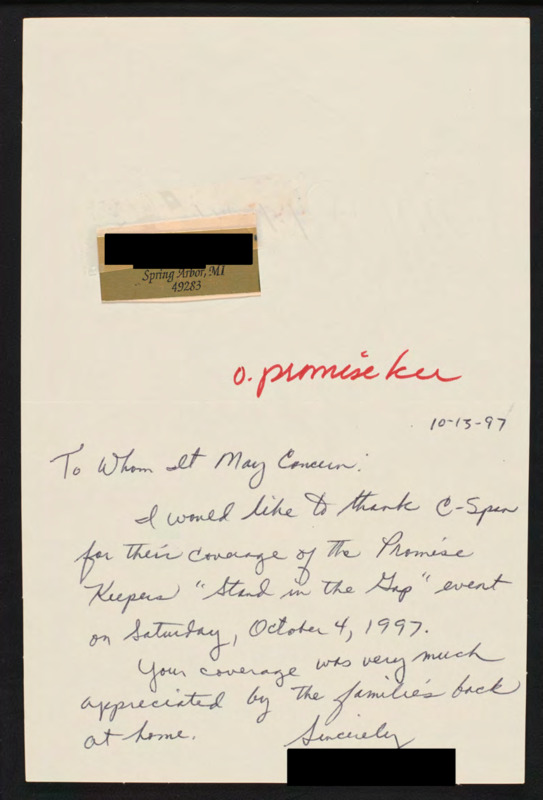 Spring Arbor, MI
49283
o. promise kee
10-13-97
To Whom It May Concern:
I would like to thank C-Span
for their coverage of the Promise
Keepers "Stand in the Gap" event
on Saturday, October 4, 1997.
Your coverage was very much
appreciated by the families back
at home.
Sincerely